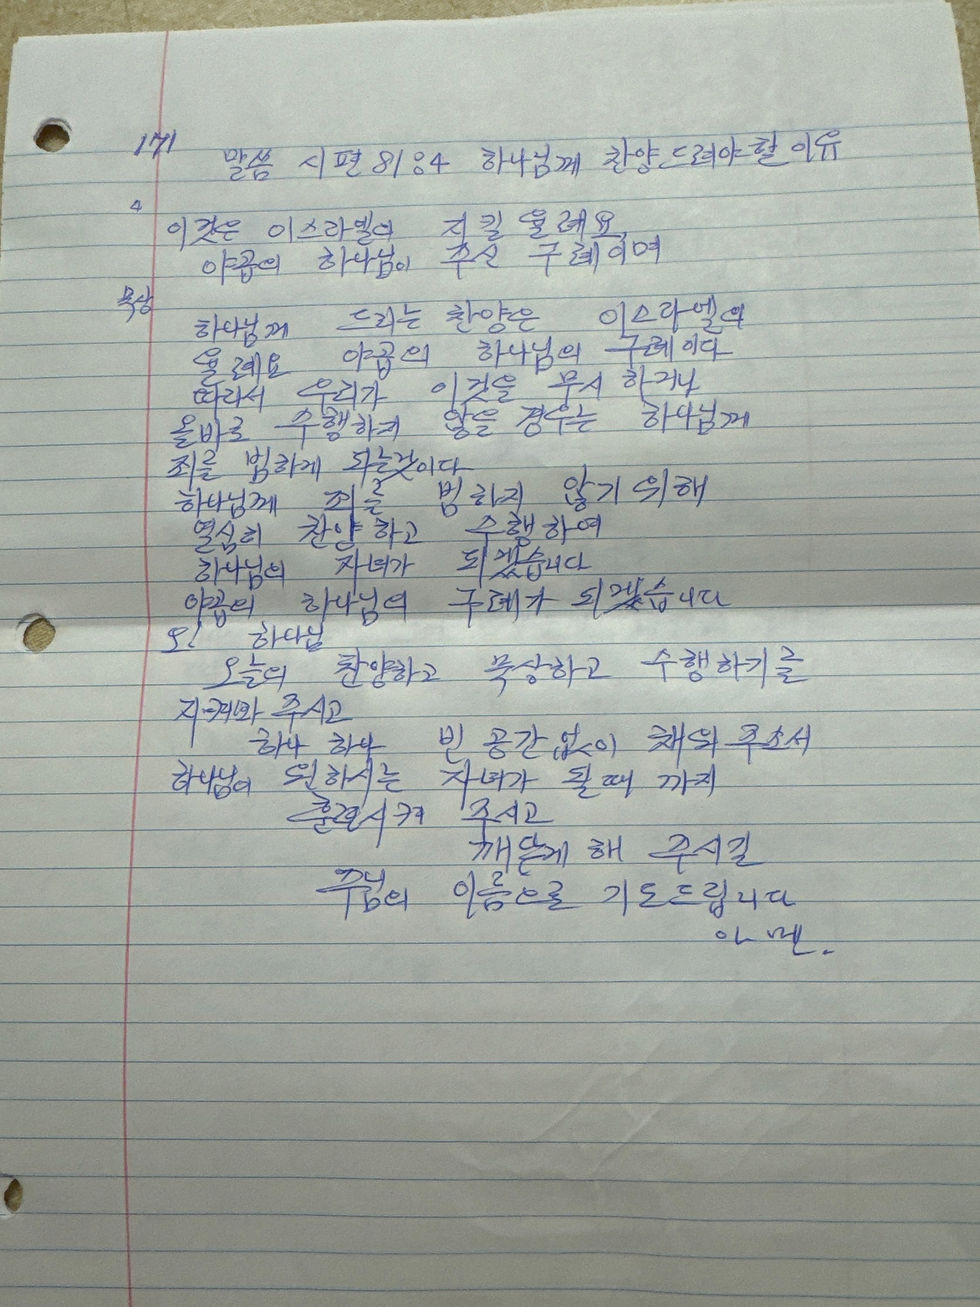 171
말씀 시편 81:4 하나님께 찬양드려야할 이유
4
이것은 이스라엘의 지킬 율례요,
야곱의 하나님이 주신 규례이며
묵상
하나님께 드리는 찬양은 이스라엘의
율례요 야곱의 하나님의 규례이다
따라서 우리가 이것을 무시 하거나
올바로 수행하지 않을 경우는 하나님께
죄를 범하게 되는것이다
하나님께 죄를 범하지 않기 위해
열심히 찬양하고 수행하여
하나님의 자녀가 되겠습니다
야곱의 하나님의 규례가 되겠습니다
오! 하나님
오늘의 찬양하고 묵상하고 수행하기를
지켜봐 주시고
하나 하나 빈 공간없이 채워 주소서
하나님이 원하시는 자녀가 될때 까지
훈련시켜 주시고
깨닫게 해 주시길
주님의 이름으로 기도드립니다
아멘.